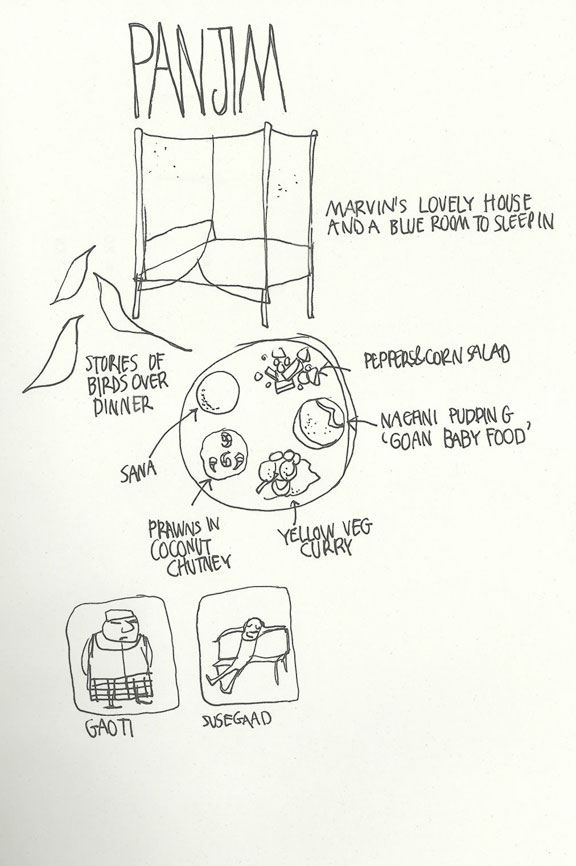 PANJIM
MARVIN'S LOVELY HOUSE
AND A BLUE ROOM TO SLEEP IN
STORIES OF
BIRDS OVER
DINNER
PEPPERS&CORN SALAD
NACHNI PUDDING
'GOAN BABY FOOD'
SANA
PRAWNS IN
COCONUT
CHUTNEY
YELLOW VEG
CURRY
GAOTI
SUSEGAAD